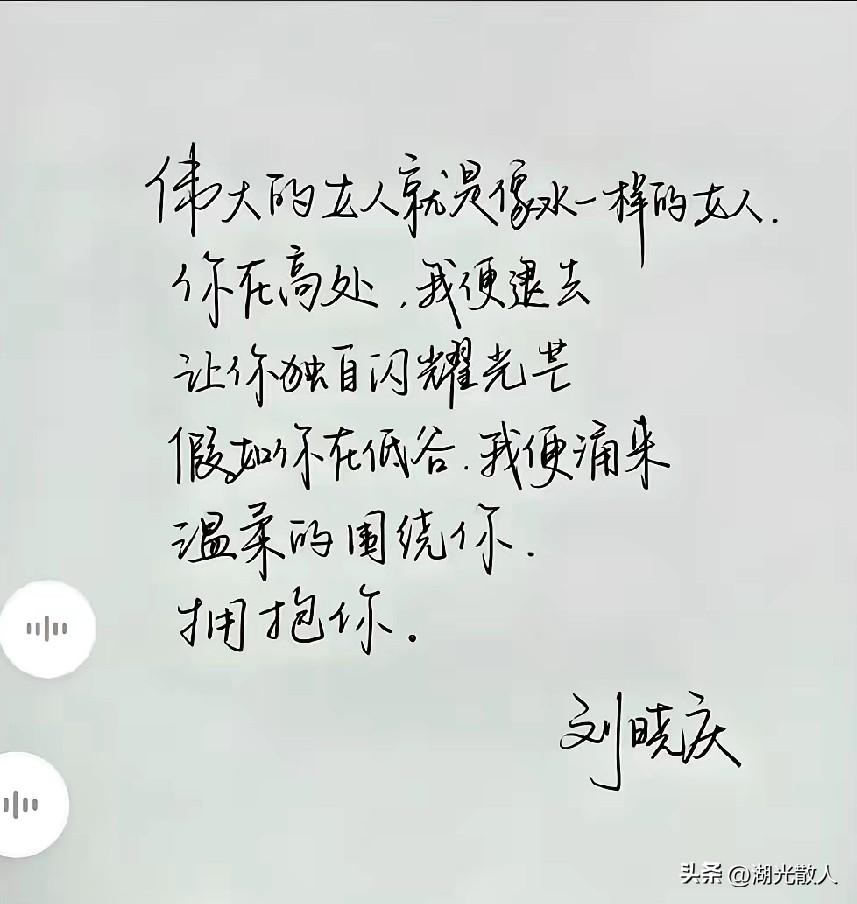 伟大的女人就是像水一样的女人.
你在高处,我便退去
让你独自闪耀光芒
假如你在低谷.我便涌来
温柔的围绕你.
拥抱你.
刘晓庆
头条 @湖光散人